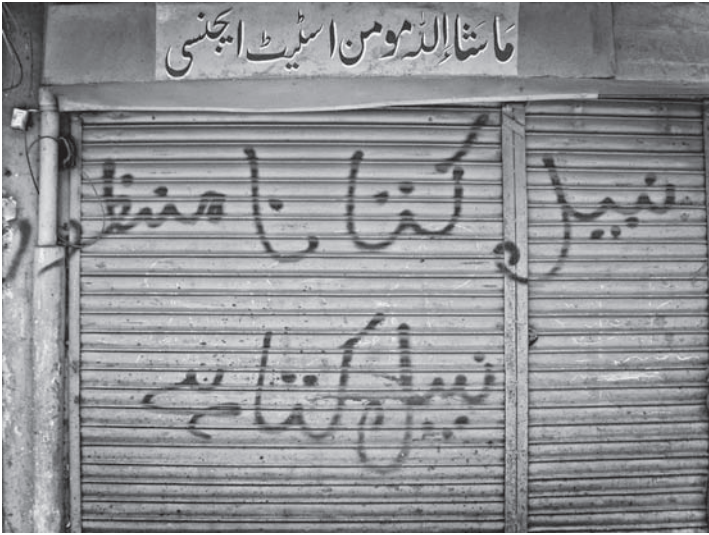 ماشااللہ مومن اسٹیٹ ایجنسی
نبیل کتا نا منظور
نبیل کتا ہے